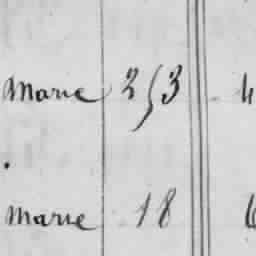 Marie 253 4
Marie 18 6